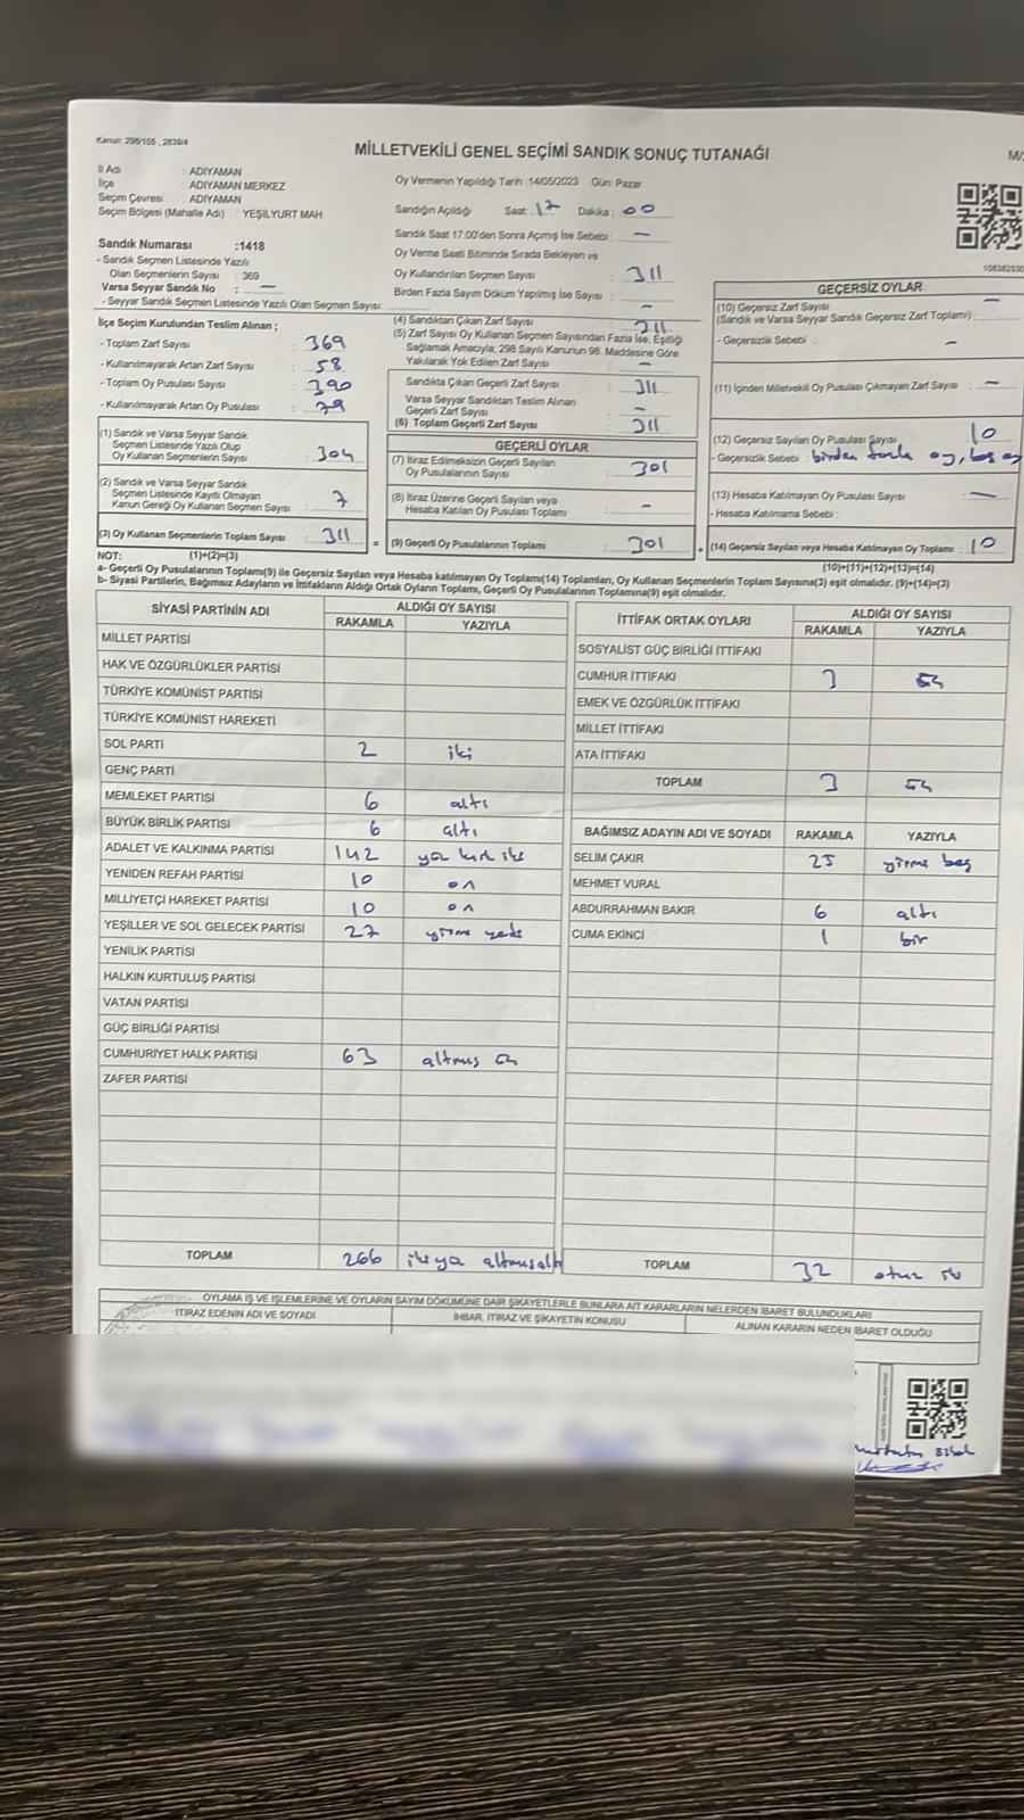 Kanun: 298/155 , 2839/4
MİLLETVEKİLİ GENEL SEÇİMİ SANDIK SONUÇ TUTANAĞI
İl Adı : ADIYAMAN
İlçe ADIYAMAN MERKEZ
Seçim Çevresi ADIYAMAN
Seçim Bölgesi (Mahalle Adı) : YEŞİLYURT MAH
Sandık Numarası :1418
- Sandık Seçmen Listesinde Yazılı
Olan Seçmenlerin Sayısı : 369
Varsa Seyyar Sandık No : —
- Seyyar Sandık Seçmen Listesinde Yazılı Olan Seçmen Sayısı:
Oy Vermenin Yapıldığı Tarih :14/05/2023 Gün: Pazar
Sandığın Açıldığı Saat: 17 Dakika: 00
Sandık Saat 17:00'den Sonra Açılmış İse Sebebi : —
Oy Verme Saati Bitiminde Sırada Bekleyen ve
Oy Kullandırılan Seçmen Sayısı : 311
Birden Fazla Sayım Döküm Yapılmış İse Sayısı : —
İlçe Seçim Kurulundan Teslim Alınan ;
- Toplam Zarf Sayısı : 369
- Kullanılmayarak Artan Zarf Sayısı : 58
- Toplam Oy Pusulası Sayısı : 390
- Kullanılmayarak Artan Oy Pusulası : 79
(1) Sandık ve Varsa Seyyar Sandık
Seçmen Listesinde Yazılı Olup
Oy Kullanan Seçmenlerin Sayısı : 304
(2) Sandık ve Varsa Seyyar Sandık
Seçmen Listesinde Kayıtlı Olmayan
Kanun Gereği Oy Kullanan Seçmen Sayısı : 7
(3) Oy Kullanan Seçmenlerin Toplam Sayısı : 311
(4) Sandıktan Çıkan Zarf Sayısı : 311
(5) Zarf Sayısı Oy Kullanan Seçmen Sayısından Fazla İse, Eşitliği
Sağlamak Amacıyla, 298 Sayılı Kanunun 98. Maddesine Göre
Yakılarak Yok Edilen Zarf Sayısı : —
Sandıkta Çıkan Geçerli Zarf Sayısı : 311
Varsa Seyyar Sandıktan Teslim Alınan
Geçerli Zarf Sayısı : —
(6) Toplam Geçerli Zarf Sayısı : 311
GEÇERLİ OYLAR
(7) İtiraz Edilmeksizin Geçerli Sayılan
Oy Pusulalarının Sayısı : 301
(8) İtiraz Üzerine Geçerli Sayılan veya
Hesaba Katılan Oy Pusulası Toplamı : —
= (9) Geçerli Oy Pusulalarının Toplamı : 301
GEÇERSİZ OYLAR
(10) Geçersiz Zarf Sayısı : —
(Sandık ve Varsa Seyyar Sandık Geçersiz Zarf Toplamı)
- Geçersizlik Sebebi : —
(11) İçinden Milletvekili Oy Pusulası Çıkmayan Zarf Sayısı : —
(12) Geçersiz Sayılan Oy Pusulası Sayısı : 10
- Geçersizlik Sebebi : birden fazla oy, boş oy
(13) Hesaba Katılmayan Oy Pusulası Sayısı : —
- Hesaba Katılmama Sebebi :
+ (14) Geçersiz Sayılan veya Hesaba Katılmayan Oy Toplamı : 10
NOT: (1)+(2)=(3) (10)+(11)+(12)+(13)=(14)
a- Geçerli Oy Pusulalarının Toplamı(9) ile Geçersiz Sayılan veya Hesaba katılmayan Oy Toplamı(14) Toplamları, Oy Kullanan Seçmenlerin Toplam Sayısına(3) eşit olmalıdır. (9)+(14)=(3)
b- Siyasi Partilerin, Bağımsız Adayların ve İttifakların Aldığı Ortak Oyların Toplamı, Geçerli Oy Pusulalarının Toplamına(9) eşit olmalıdır.
SİYASİ PARTİNİN ADI ALDIĞI OY SAYISI
RAKAMLA YAZIYLA
MİLLET PARTİSİ
HAK VE ÖZGÜRLÜKLER PARTİSİ
TÜRKİYE KOMÜNİST PARTİSİ
TÜRKİYE KOMÜNİST HAREKETİ
SOL PARTİ 2 iki
GENÇ PARTİ
MEMLEKET PARTİSİ 6 altı
BÜYÜK BİRLİK PARTİSİ 6 altı
ADALET VE KALKINMA PARTİSİ 142 yüz kırk iki
YENİDEN REFAH PARTİSİ 10 on
MİLLİYETÇİ HAREKET PARTİSİ 10 on
YEŞİLLER VE SOL GELECEK PARTİSİ 27 yirmi yedi
YENİLİK PARTİSİ
HALKIN KURTULUŞ PARTİSİ
VATAN PARTİSİ
GÜÇ BİRLİĞİ PARTİSİ
CUMHURİYET HALK PARTİSİ 63 altmış üç
ZAFER PARTİSİ
TOPLAM 266 ikiyüz altmışaltı
İTTİFAK ORTAK OYLARI ALDIĞI OY SAYISI
RAKAMLA YAZIYLA
SOSYALİST GÜÇ BİRLİĞİ İTTİFAKI
CUMHUR İTTİFAKI 3 üç
EMEK VE ÖZGÜRLÜK İTTİFAKI
MİLLET İTTİFAKI
ATA İTTİFAKI
TOPLAM 3 üç
BAĞIMSIZ ADAYIN ADI VE SOYADI RAKAMLA YAZIYLA
SELİM ÇAKIR 25 yirmi beş
MEHMET VURAL
ABDURRAHMAN BAKIR 6 altı
CUMA EKİNCİ 1 bir
TOPLAM 32 otuz iki
OYLAMA İŞ VE İŞLEMLERİNE VE OYLARIN SAYIM DÖKÜMÜNE DAİR ŞİKAYETLERLE BUNLARA AİT KARARLARIN NELERDEN İBARET BULUNDUKLARI
İTİRAZ EDENİN ADI VE SOYADI İHBAR, İTİRAZ VE ŞİKAYETİN KONUSU ALINAN KARARIN NEDEN İBARET OLDUĞU